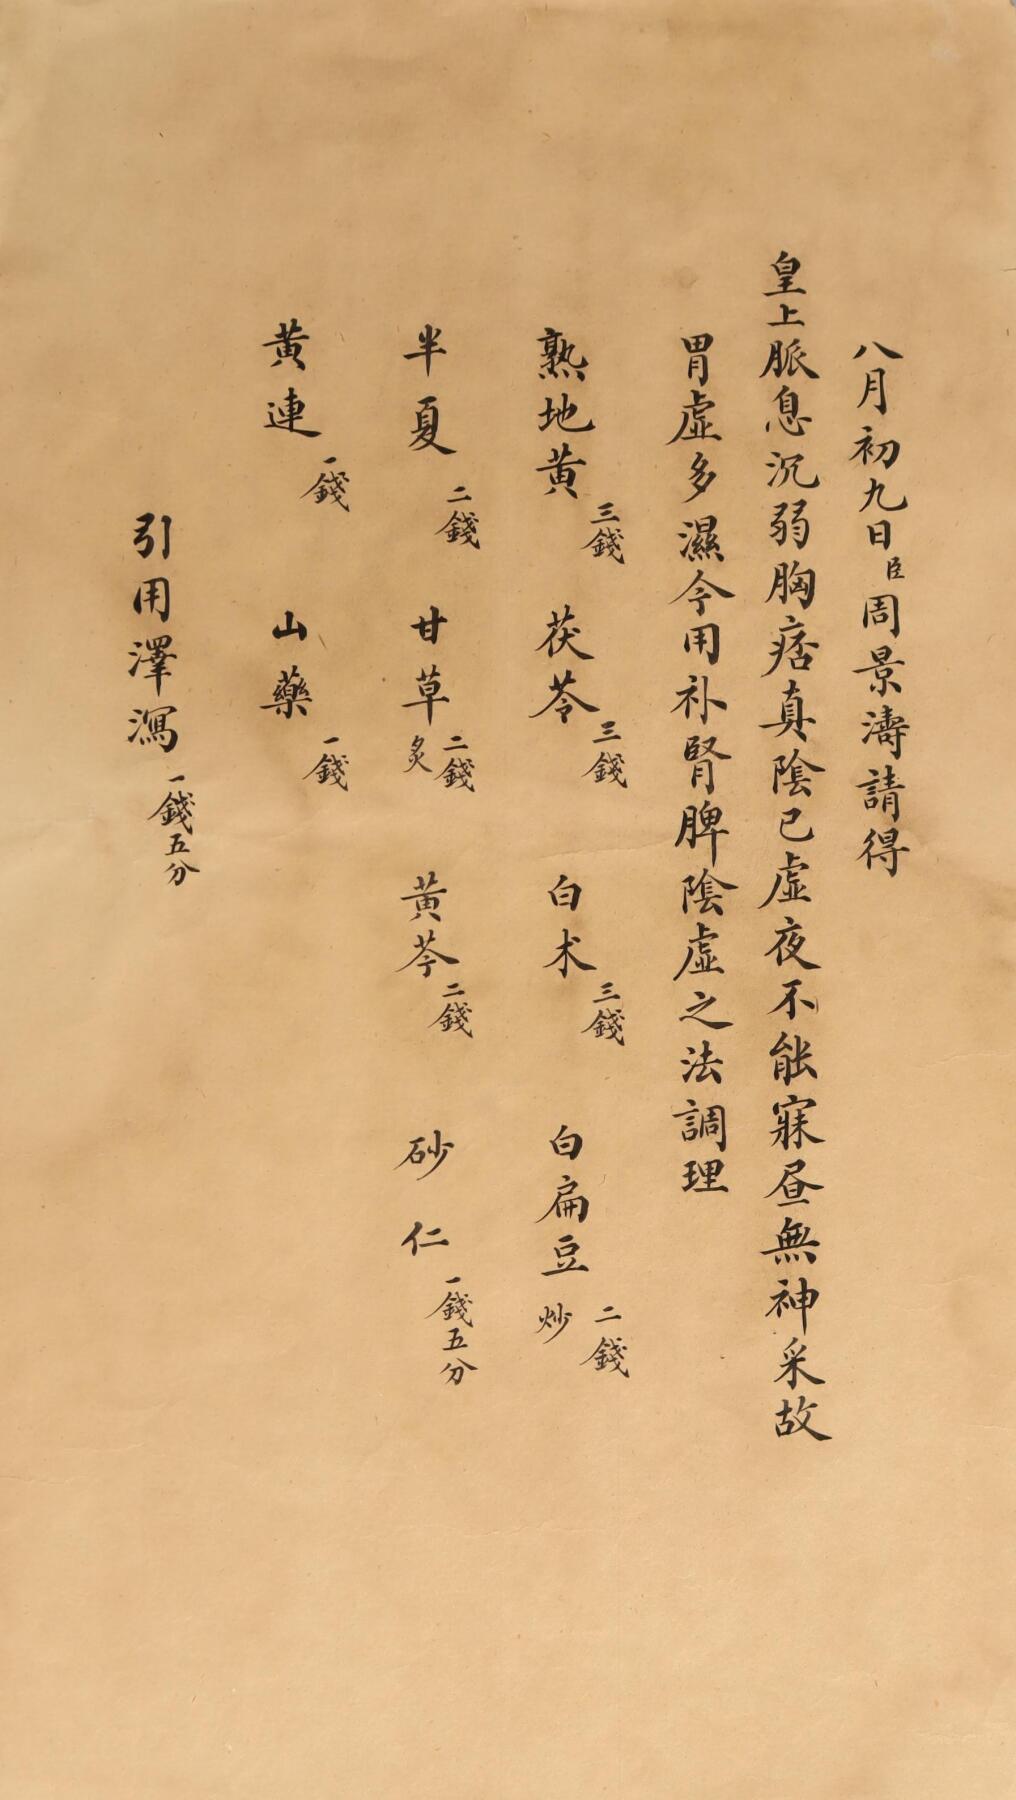 八月初九日臣周景濤請得
皇上脈息沉弱胸痞真陰已虛夜不能寐昼無神采故
胃虛多濕今用补腎脾陰虛之法調理
熟地黃三錢 茯苓三錢 白朮三錢 白扁豆炒二錢
半夏二錢 甘草炙二錢 黃芩二錢 砂仁一錢五分
黃連一錢 山藥一錢
引用澤瀉一錢五分